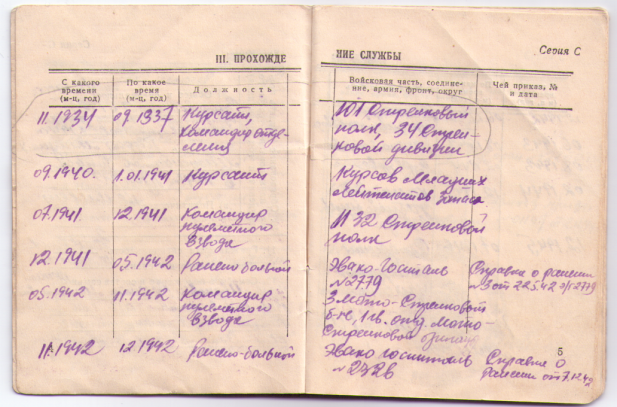 Серия С
III. ПРОХОЖДЕ НИЕ СЛУЖБЫ
С какого времени (м-ц, год)
По какое время (м-ц, год)
Должность
Войсковая часть, соедине-
ние, армия, фронт, округ
Чей приказ, №
и дата
11.1934 09.1937 Курсант,
командир отде-
ления
101 Стрелковый
полк, 34 Стрел-
ковой дивизии
09.1940. 1.01.1941 Курсант
Курсов младших
лейтенантов запаса
07.1941 12.1941 Командир
пулеметного
взвода
1132 Стрелковой
полк
12.1941 05.1942 Ранено-больной
Эвако-Госпиталь
№2779
Справка о ранении
05.1942 11.1942 Командир
пулеметного
взвода
3 мото-Стрелковой
б-н, 1 гв. отд. мото-
Стрелковой
11.1942 12.1942 Ранено-больной
Эвако госпиталь
Справка о
ранении от
5